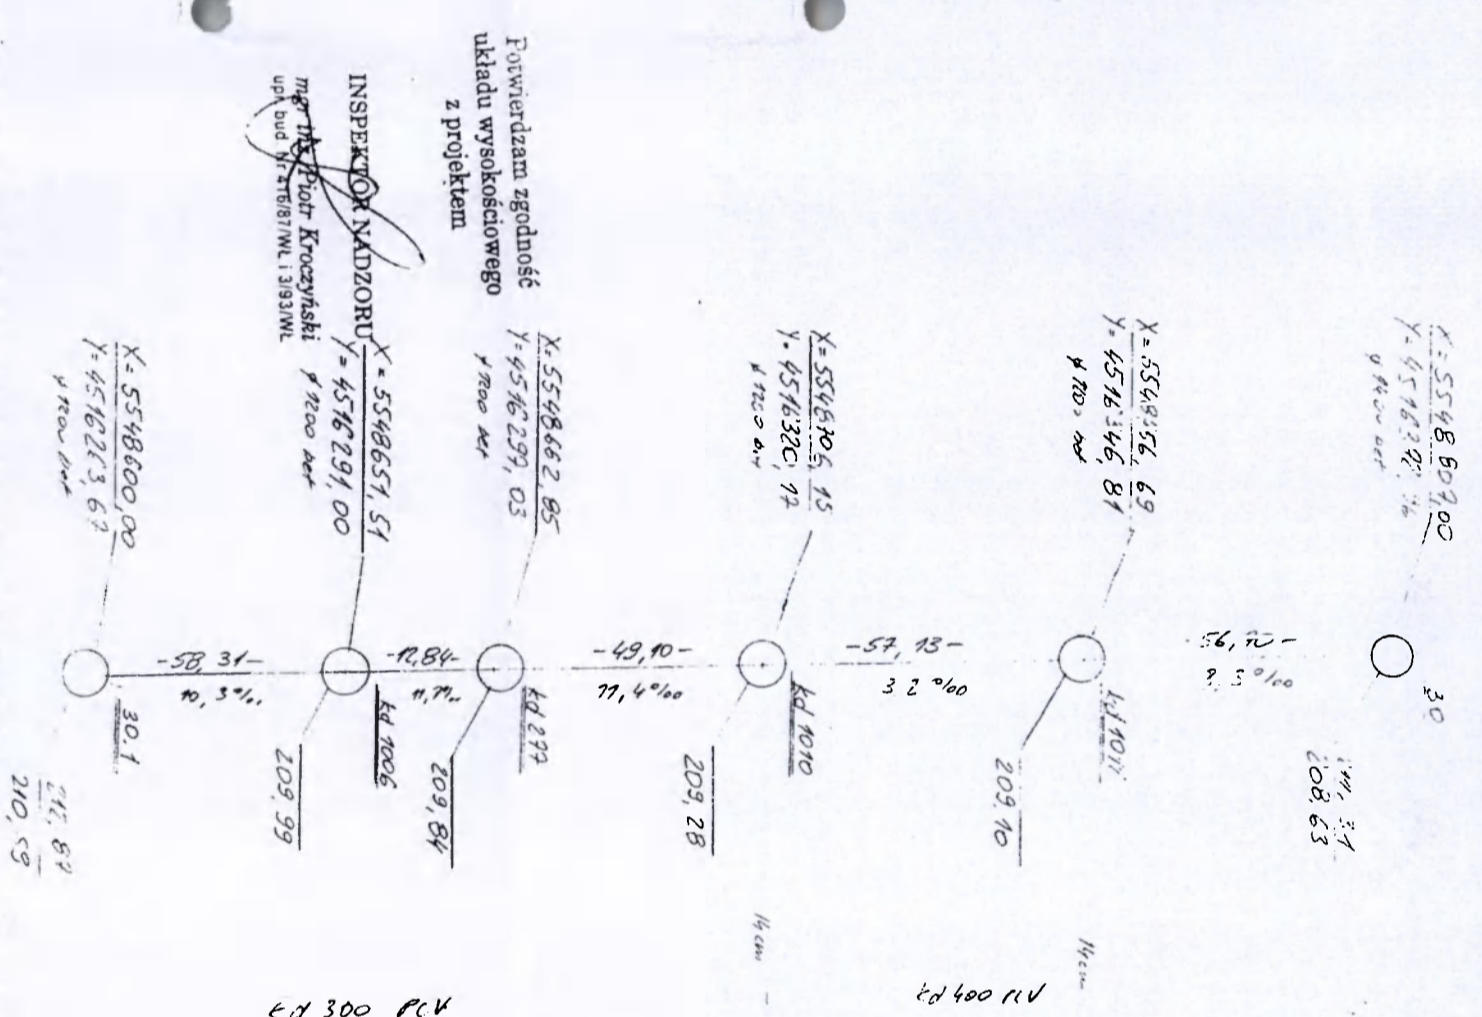 Potwierdzam zgodność
układu wysokościowego
z projektem
INSPEKTOR NADZORU
mgr inż. Piotr Kroczyński
upr. bud. Nr 416/87/WŁ i 3/93/WŁ
X = 5548600,00
Y = 4516263,67
X = 5548651,51
Y = 4516291,00
ø 1200 bet
X = 5548662,85
Y = 4516297,03
ø 1200 bet
X = 5548706,15
Y = 4516320,12
X = 5548756,69
Y = 4516346,81
ø 1200 bet
X = 5548807,00
bet
-58,31-
-12,84-
-49,10-
-57,13-
10,3 ‰
11,4 ‰
3,2 ‰
30.1
kd 1006
kd 277
kd 1010
30
210,59
209,99
209,84
209,28
209,10
208,63
14 cm
14 cm
kd 300 PCV
kd 400 PCV